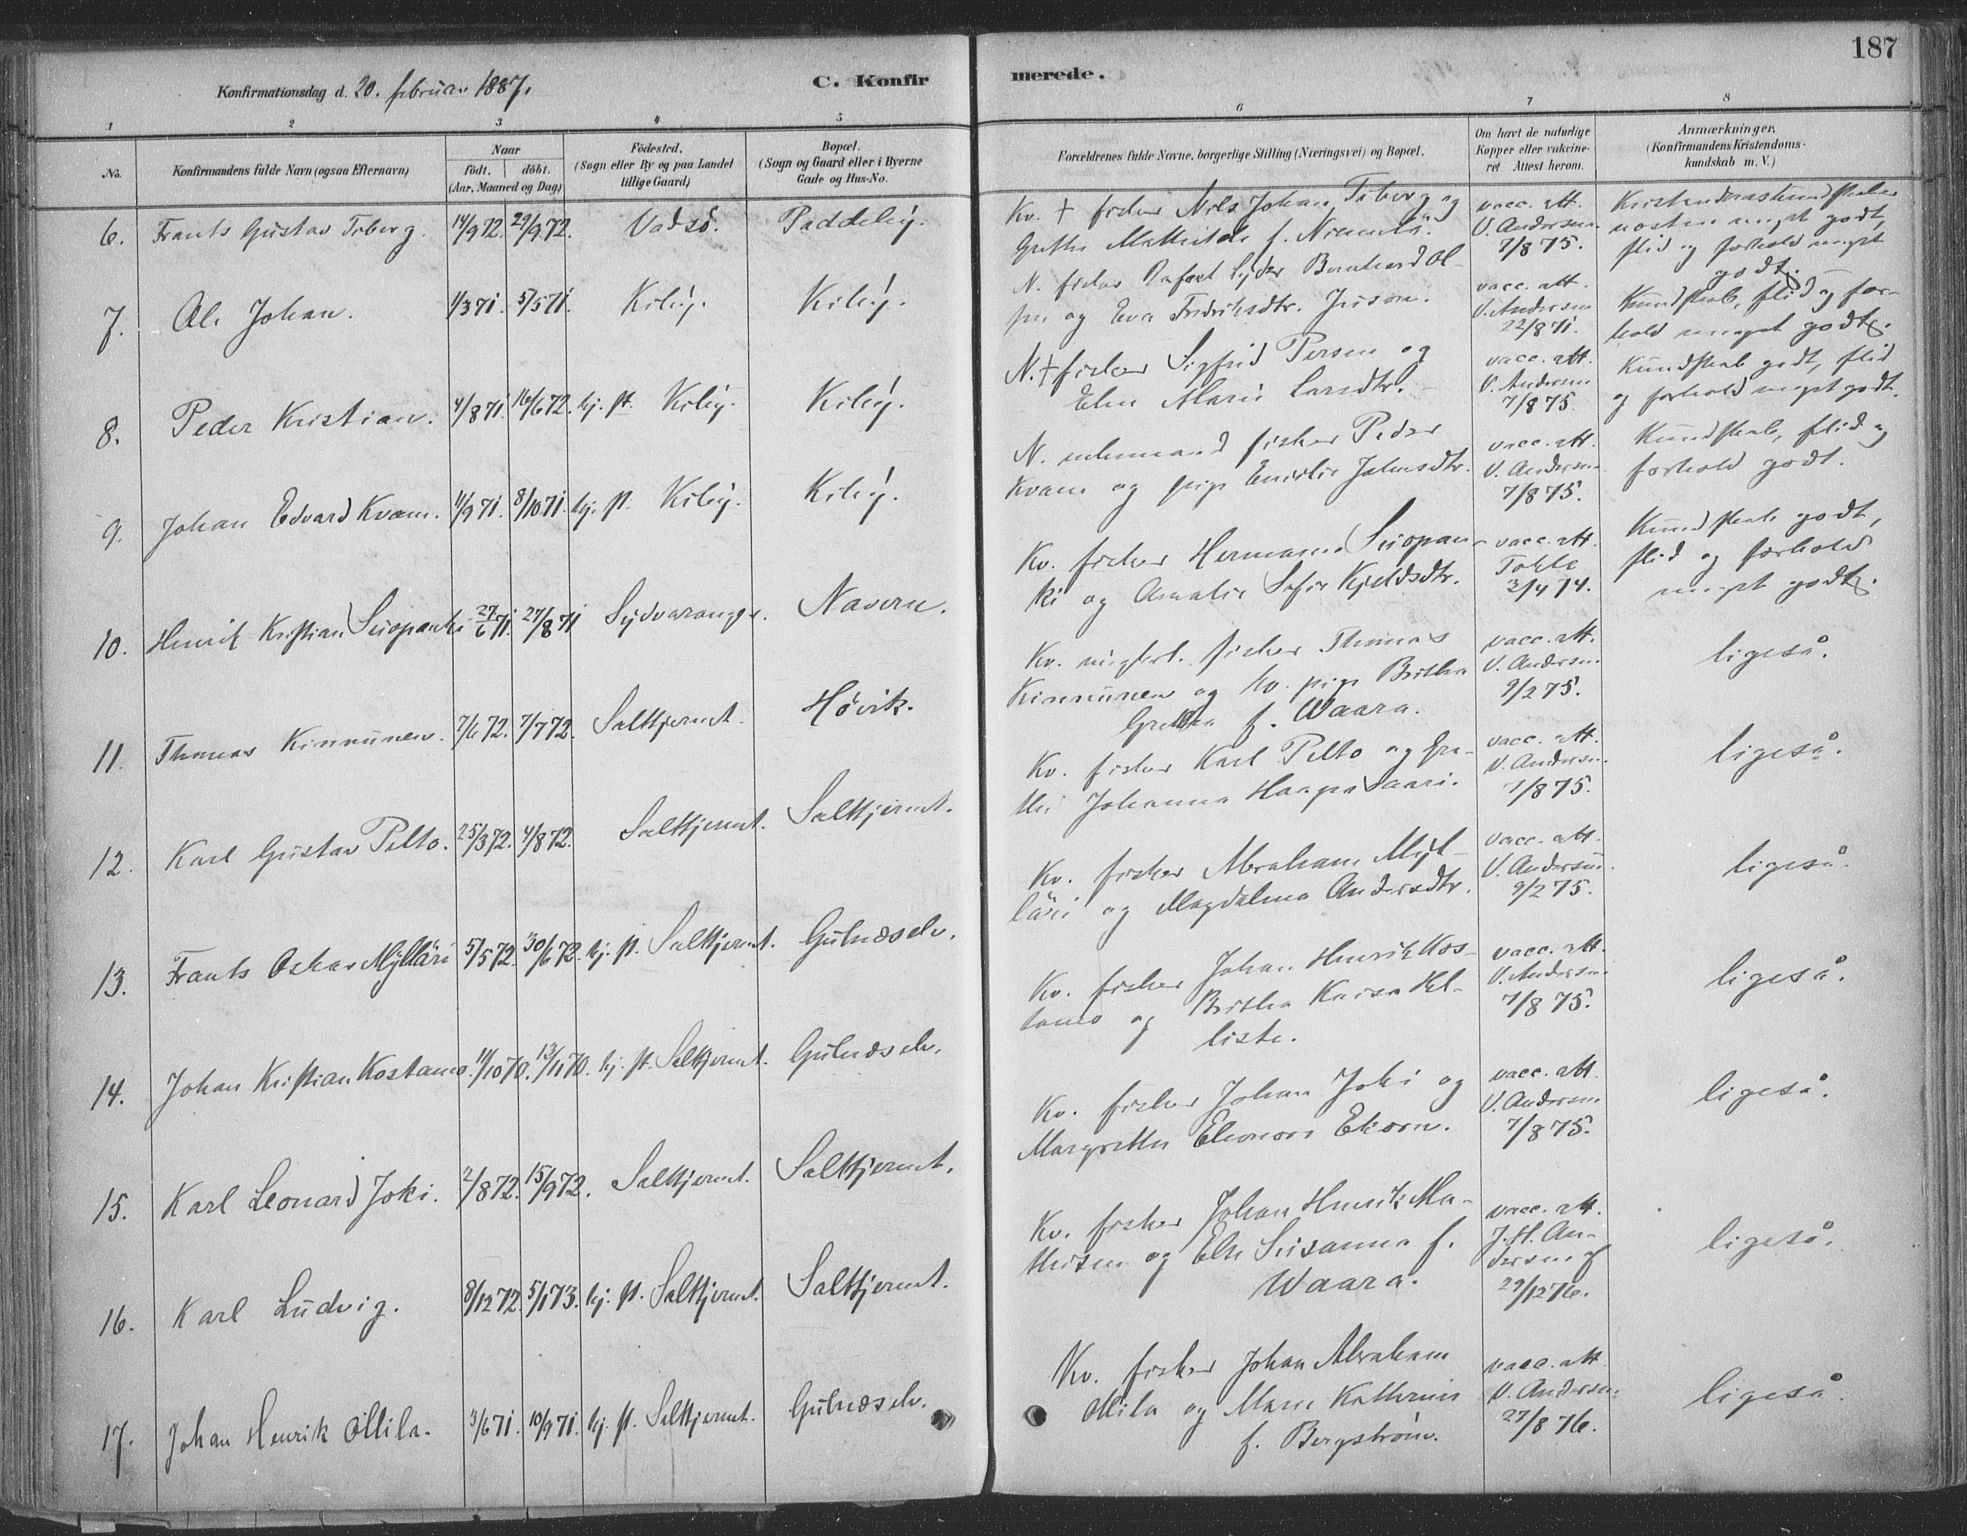 187
Konfirmationsdag d. 20. februar 1887.
C. Konfir
merede.
1 2 3 4 5
6 7 8
No.
Konfirmandens fulde Navn (ogsaa Efternavn)
Naar
födt. döbt.
(Aar, Maaned og Dag)
Födested.
(Sogn eller By og paa Landet
tillige Gaard)
Bopæl.
(Sogn og Gaard eller i Byerne
Gade og Hus-No.
Forældrenes fulde Navne, borgerlige Stilling (Næringsvei) og Bopæl.
Om havt de naturlige
Kopper eller vakcine-
ret Attest herom.
Anmærkninger.
(Konfirmandens Kristendoms-
kundskab m. V.)
6. Frants Gustav Friberg. 14/9 72. 29/9 72. Vadsö. Paddeby.
Kv. + fisker Nils Johan Friberg og
Grethe Mathilde f. Niemelä.
vacc. att.
V. Andersen
7/8 75.
Kristendomskundskaber
næsten meget godt,
flid og forhold meget
godt.
7. Ole Johan. 1/3 71. 5/5 71. Kiby. Kiby.
N. fisker Bernhard Ol-
sen og Eva Fredriksdtr.
vacc. att.
V. Andersen
22/8 71.
Kundskab, flid og for-
hold meget godt.
8. Peder Kristian. 4/8 71. 16/6 72. hj. st. Kiby. Kiby.
N. + fisker Sigfrid Persen og
Elen Marie Larsdtr.
vacc. att.
V. Andersen
7/8 75.
Kundskab godt, flid
og forhold meget godt.
9. Johan Edvard Kvam. 11/9 71. 8/10 71. hj. st. Kiby. Kiby.
N. enkemand fisker Peder
Kvam og pige Emilie Johnsdtr.
vacc. att.
V. Andersen
7/8 75.
Kundskab, flid og
forhold godt.
10. Henrik Kristian Suopanki 27/6 71. 27/8 71 Sydvaranger. Navern.
Kv. fisker Hermann Suopan-
ki og Amalie Sofie Kjeldsdtr.
vacc. att.
Tokle
3/4 74.
Kundskab godt,
flid og forhold
meget godt.
11. Thomas Kinnunen. 7/6 72. 7/7 72. Saltkjernet. Høvik.
Kv. ungkarl fisker Thomas
Kinnunen og kv. pige Britha
Gretha f. Waara.
vacc. att.
V. Andersen
9/2 75.
ligeså.
12. Karl Gustav Pelto. 25/3 72. 4/8 72. Saltkjernet. Saltkjernet.
Kv. fisker Karl Pelto og Gre-
the Johanna Haapasaari.
vacc. att.
V. Andersen.
7/8 75.
ligeså.
13. Frants Oskar Mylläri 5/5 72. 30/6 72. hj. st. Saltkjernet. Gulnæselv.
Kv. fisker Abraham Myl-
läri og Magdalena Andersdtr.
vacc. att.
V. Andersen.
9/2 75.
ligeså.
14. Johan Kristian Kostamo. 11/10 70. 13/11 70. hj. st. Saltkjernet. Gulnæselv.
Kv. fisker Johan Henrik Kos-
tamo og Britha Kaisa Hel-
liste.
vacc. att.
V. Andersen
7/8 75.
ligeså.
15. Karl Leonard Joki. 2/8 72. 15/9 72. Saltkjernet. Saltkjernet.
Kv. fisker Johan Joki og
Margrethe Eleonora Ekorn.
vacc. att.
V. Andersen
7/8 75.
ligeså.
16. Karl Ludvig. 8/12 72. 5/1 73. hj. st. Saltkjernet. Saltkjernet.
Kv. fisker Johan Henrik Ma-
thisen og Else Susanna f.
Waara.
vacc. att.
J. H. An-
dersen af
29/12 76.
ligeså.
17. Johan Henrik Ollila. 3/6 71. 10/9 71. hj. st. Saltkjernet. Gulnæselv.
Kv. fisker Johan Abraham
Ollila og Marie Katherine
f. Bergstrøm.
vacc. att.
V. Andersen.
27/8 76.
ligeså.